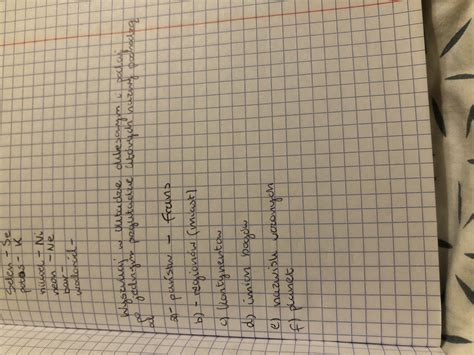 Selen - Se
potas - K
nikiel - Ni
neon - Ne
bar -
wodorek -
Wyszukaj w układzie okresowym i podaj
po jednym przykładzie których nazwy pochodzą
od
a) - państw - Frans
b) - regionów (miast)
c) kontynentów
d) imion bogów
e) nazwisk uczonych
f) planet